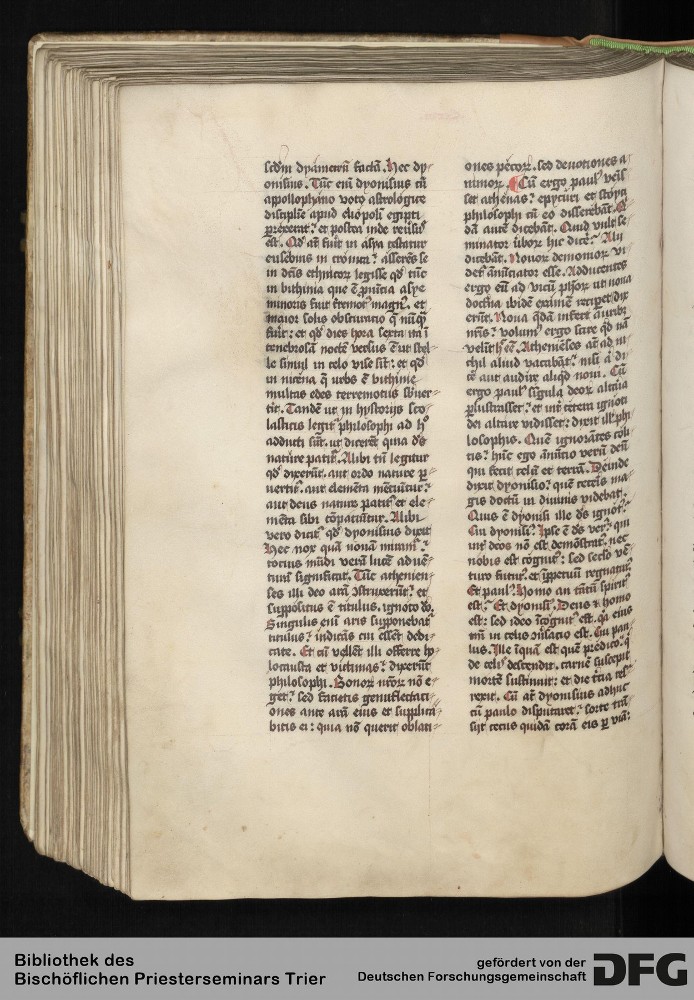 scd'm dyametrū factā. Hec dy-
onisius. Tūc eni dyonisius cū
apollophano voto astrologice
discipline apud eliopolī egipti
perrexerat: et postea inde reūsus
est. Qd at fuit in asya testatur
eusebius in cronica: asserēs se
in dictis ethnicorum legisse qd tūc
in bithinia que ē prouicia asye
minoris fuit terremotus magnus et
maior solis obscuratio q nūqm
fuit: et qd dies hora sexta in
tenebrosam noctē versus ē ut stel-
le simul in celo vise sūt: et qd
in nicena q urbs ē bithinie
multas edes terremotus subuer-
tit. Tandē ut in hystorijs sco-
lasticis legit philosophi ad h'
adducti sūt. ut dicerēt quia ds
nature patit. Alibi tn legitur
qd dixerūt. aut ordo nature p-
uertit. aut elementa mētiuntur:
aut deus nature patit et ele-
mēta sibi cōpatiuntur. Alibi
vero dicit qd dyonisius dixit
Hec nox quā nouam miram:
totius mūdi verā lucē aduē-
turā significat. Tūc athenien-
ses illi deo arā ostruxerūt: et
suppositus ē titulus. ignoto do.
Singulis eni aris supponebat
titulus: indicās cui essēt dedi-
cate. Et cū vellēt illi offerre ho-
locausta et victimas: dixerūt
philosophi. Bonorum nrorum nō e-
get: sed facietis genuflectati-
ones ante arā eius et supplica-
bitis ei: quia nō querit oblati-
ones pecorum. sed deuotiones a-
nimorum. Cū ergo paulus venis-
set athenas: epycuri et stoyci
philosophi cū eo disserebāt. Qui-
dā autē dicebāt. Quid vult se-
minator uborum hic dicē: Alij
dicebāt. Nouorum demoniorum vi-
det anūciator esse. Adducentes
ergo eū ad vicū phorum ut noua
doctna ibidē examen reciperet dix
erūt. Noua qdā infers auribus
nris: volumus ergo scire qd nā
velīt h' eē. Athenienses at ad ni-
chil aliud vacabāt: nisi a di-
cē aut audire aliqd noui. Cū
ergo paulus singula deorum altaria
plustrasset: et inter cetera ignoti
dei altare vidisset: dixit ill phi-
losophis. Quē ignorātes coli-
tis: hūc ego anūtio verū deū
qui fecit celū et terrā. Deinde
dixit dyonisio: quē ceteris ma-
gis doctū in diuinis videbat.
Quis ē dyonisi ille ds ignotus:
Cui dyonisius: Ipse ē ds verus: qui
inter deos nō est demōstratus. nec
nobis est cognitus: sed seclo vē-
turo futurus. et ipperuū regnaturus
Et paulus: Homo an tātū spiritus
est: Et dyonisius. Deus et homo
est: sed ideo icognitus est. qa eius
tm in celis oūsatio est. Cui pau-
lus. Ille iquā est quē predico. q
de celis descendit. carnē suscepit
mortē sustinuit: et die tcia res-
rexit. Cū at dyonisius adhuc
cū paulo disputaret: forte trā-
sijt cecus quidā corā eis per viā:
Bibliothek des
Bischöflichen Priesterseminars Trier
gefördert von der
Deutschen Forschungsgemeinschaft
DFG